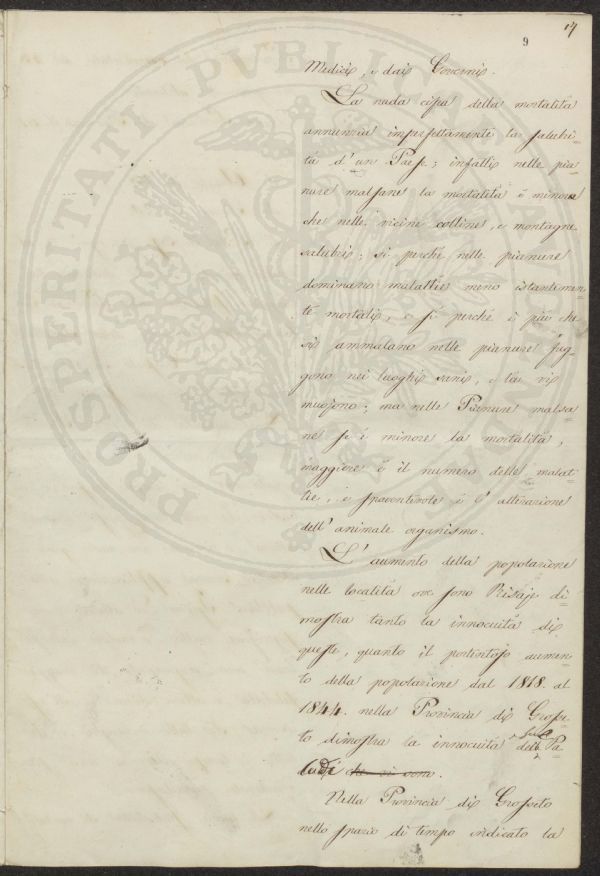 17
9
Medici, e dai Governi.
La nuda cifra della mortalità
annunzia imperfettamente la salubri=
tà d'un Paese; infatti nelle pia=
nure malsane la mortalità è minore
che nelle vicine colline, e montagne
salubri; sì perché nelle pianure
dominano malattie meno istantimen=
te mortali, e sì perché i più che
si ammalano nelle pianure fug=
gono nei luoghi sani, e là vi
muojono; ma nelle Pianure malsa=
ne se è minore la mortalità,
maggiore è il numero delle malat=
tie, e spaventevole è l'alterazione
dell'animale organismo.
L'aumento della popolazione
nelle località ove sono Risaje di=
mostra tanto la innocuità di
queste, quanto il portentoso aumen=
to della popolazione dal 1818. al
1844. nella Provincia di Grosse=
to dimostra la innocuità delle sue Pa=
ludi che vi sono.
Nella Provincia di Grosseto
nello spazio di tempo indicato la
PROSPERITATI PVBLICAE